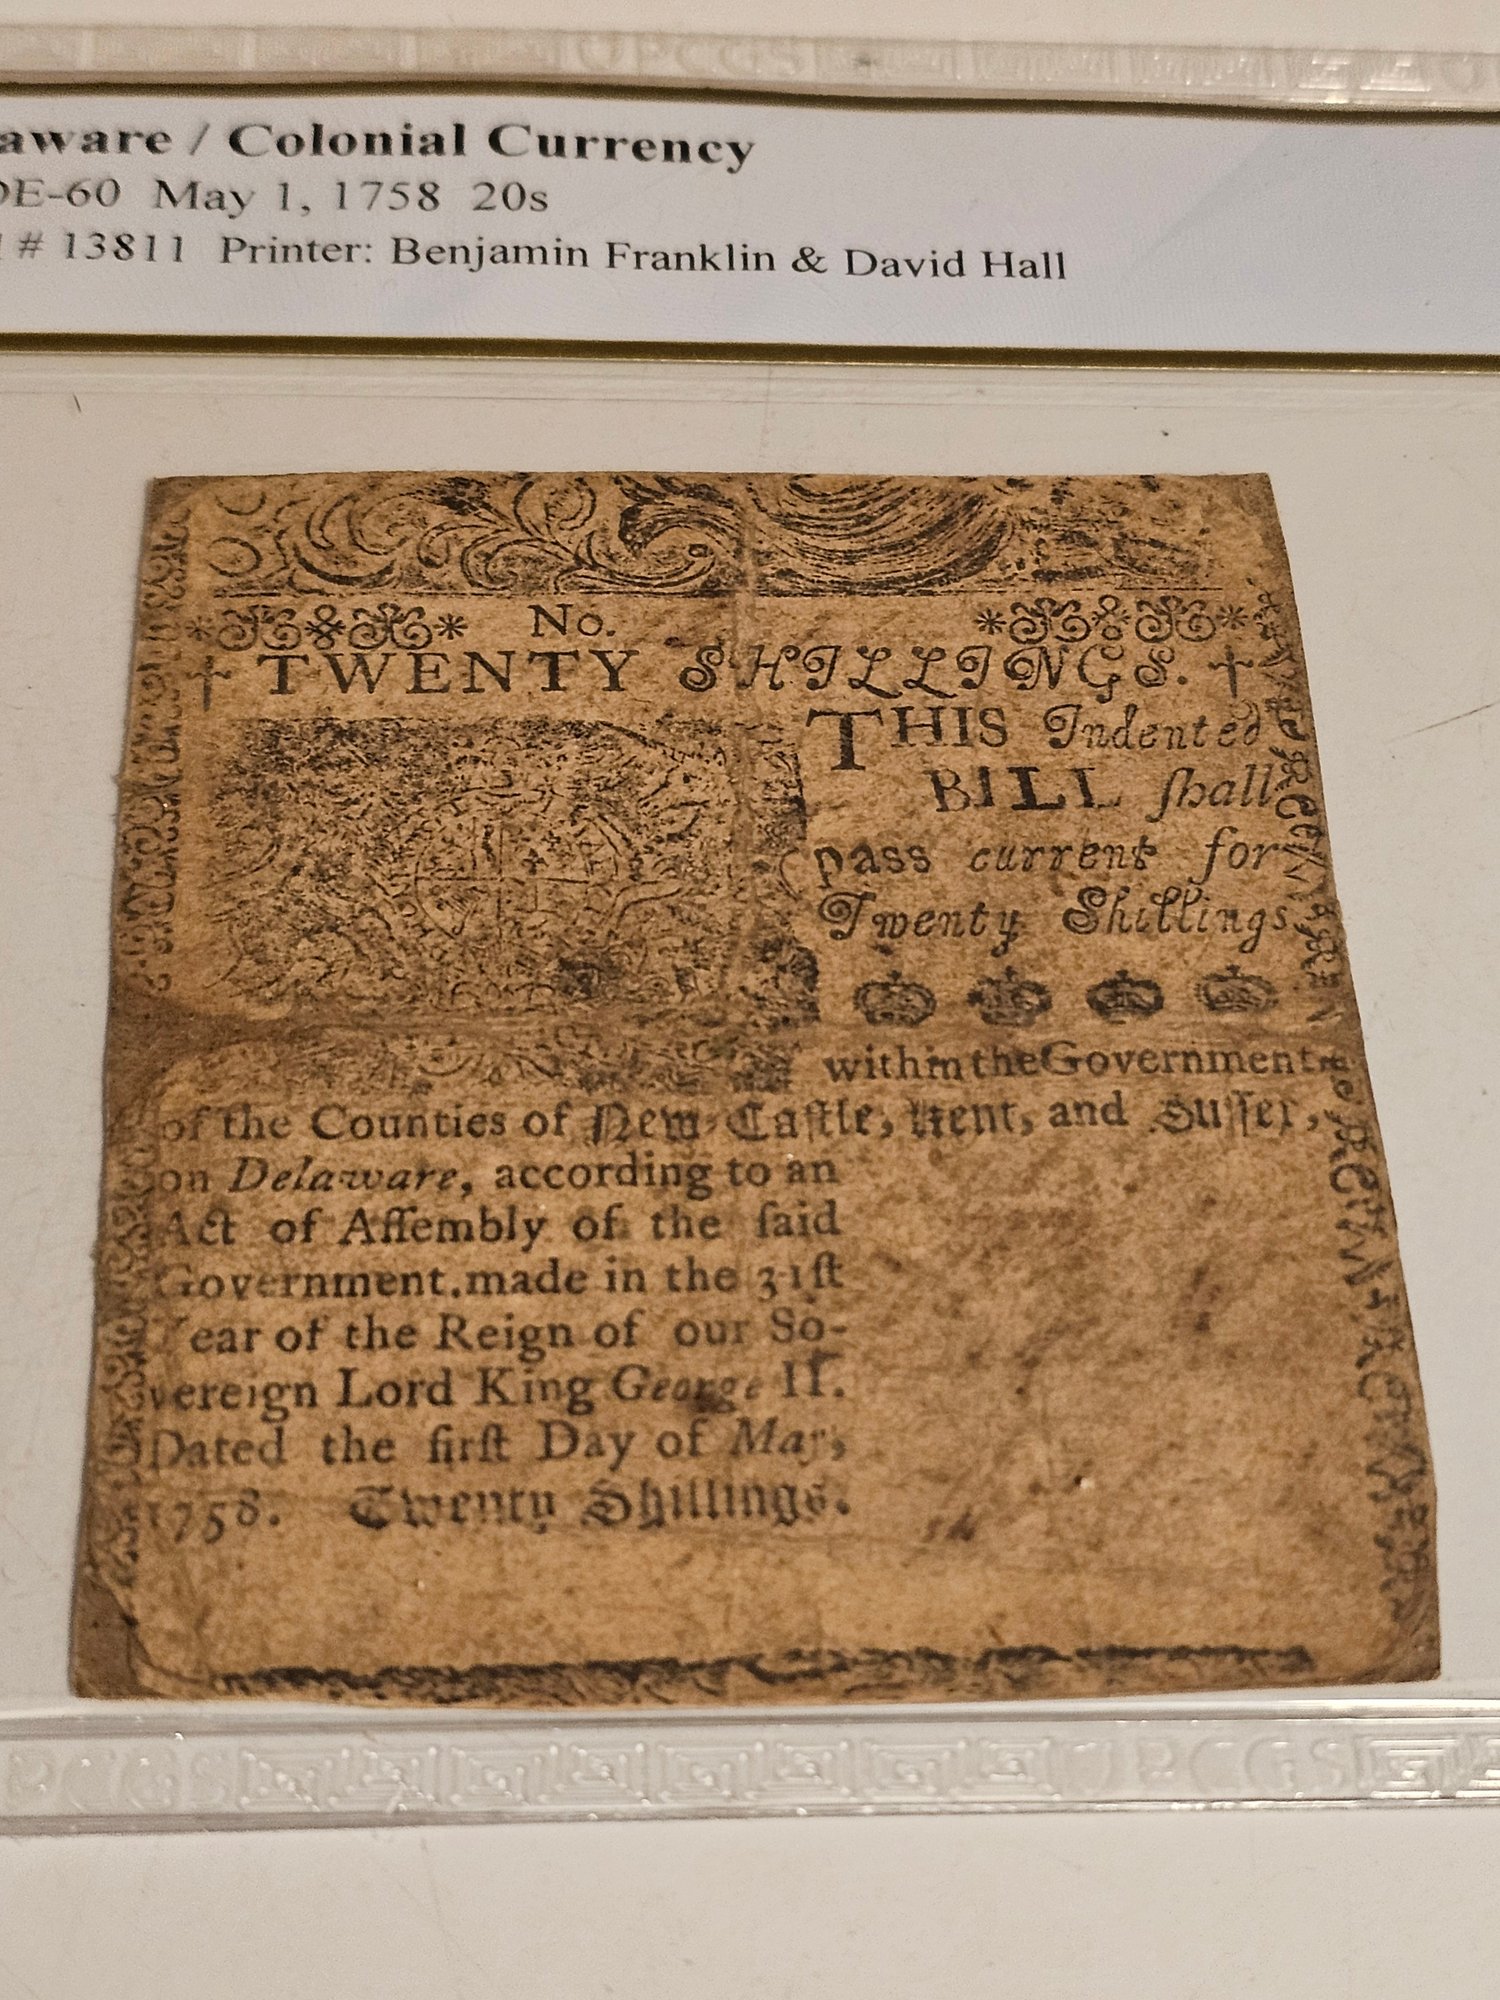 PCGS
aware / Colonial Currency
DE-60 May 1, 1758 20s
# 13811 Printer: Benjamin Franklin & David Hall
No.
† TWENTY SHILLINGS. †
THIS Indented
BILL ſhall
pass current for
Twenty Shillings
within the Government
of the Counties of New-Caſtle, Kent, and Suſſex,
on Delaware, according to an
Act of Aſſembly of the ſaid
Government, made in the 31ſt
Year of the Reign of our So-
vereign Lord King George II.
Dated the firſt Day of May,
1758. Twenty Shillings.
PCGS PCGS